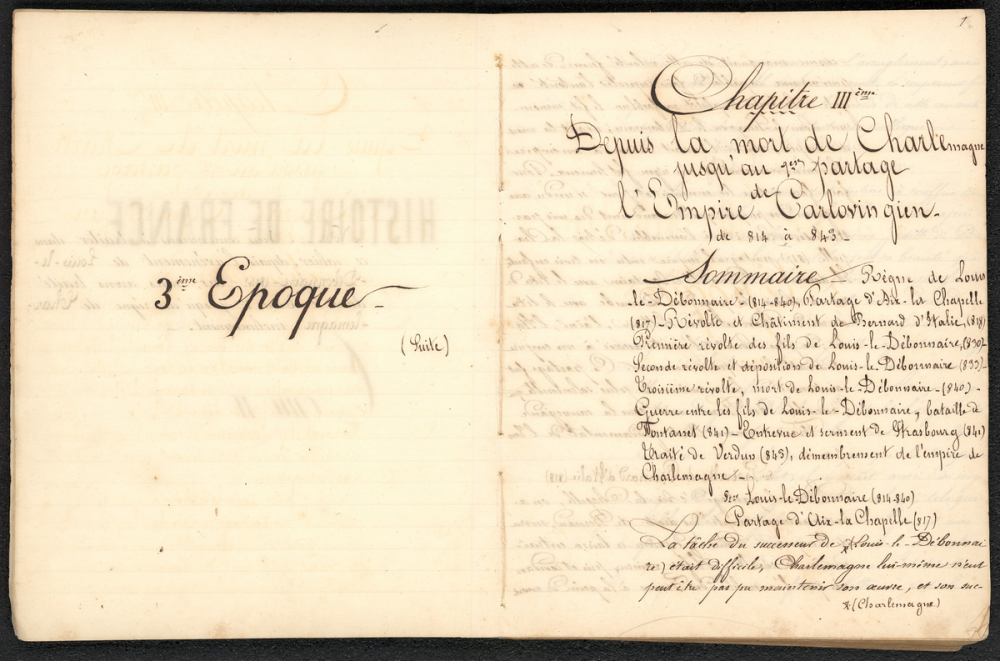 3ème Epoque
(Suite)
1.
Chapitre IIIème
Depuis la mort de Charlemagne
jusqu'au 1er partage
de
l'Empire Carlovingien.
de 814 à 843.
Sommaire - Règne de Louis
-le-Débonnaire - (814-840), Partage d'Aix-la Chapelle
(817) - Révolte et Châtiment de Bernard d'Italie, (818)
Première révolte des fils de Louis-le-Débonnaire, (830) -
Seconde révolte et déposition de Louis-le-Débonnaire (833) -
Troisième révolte, mort de Louis-le-Débonnaire - (840) -
Guerre entre les fils de Louis-le-Débonnaire, bataille de
Fontanet (841) - Entrevue et serment de Strasbourg (841)
Traité de Verdun (843), démembrement de l'empire de
Charlemagne. -
Louis-le-Débonnaire (814-840)
Partage d'Aix-la Chapelle (817)
La tâche du successeur de x(Louis-le-Débonnai
re) était difficile, Charlemagne lui-même n'eut
peut être pas pu maintenir son œuvre, et son suc-
x (Charlemagne)